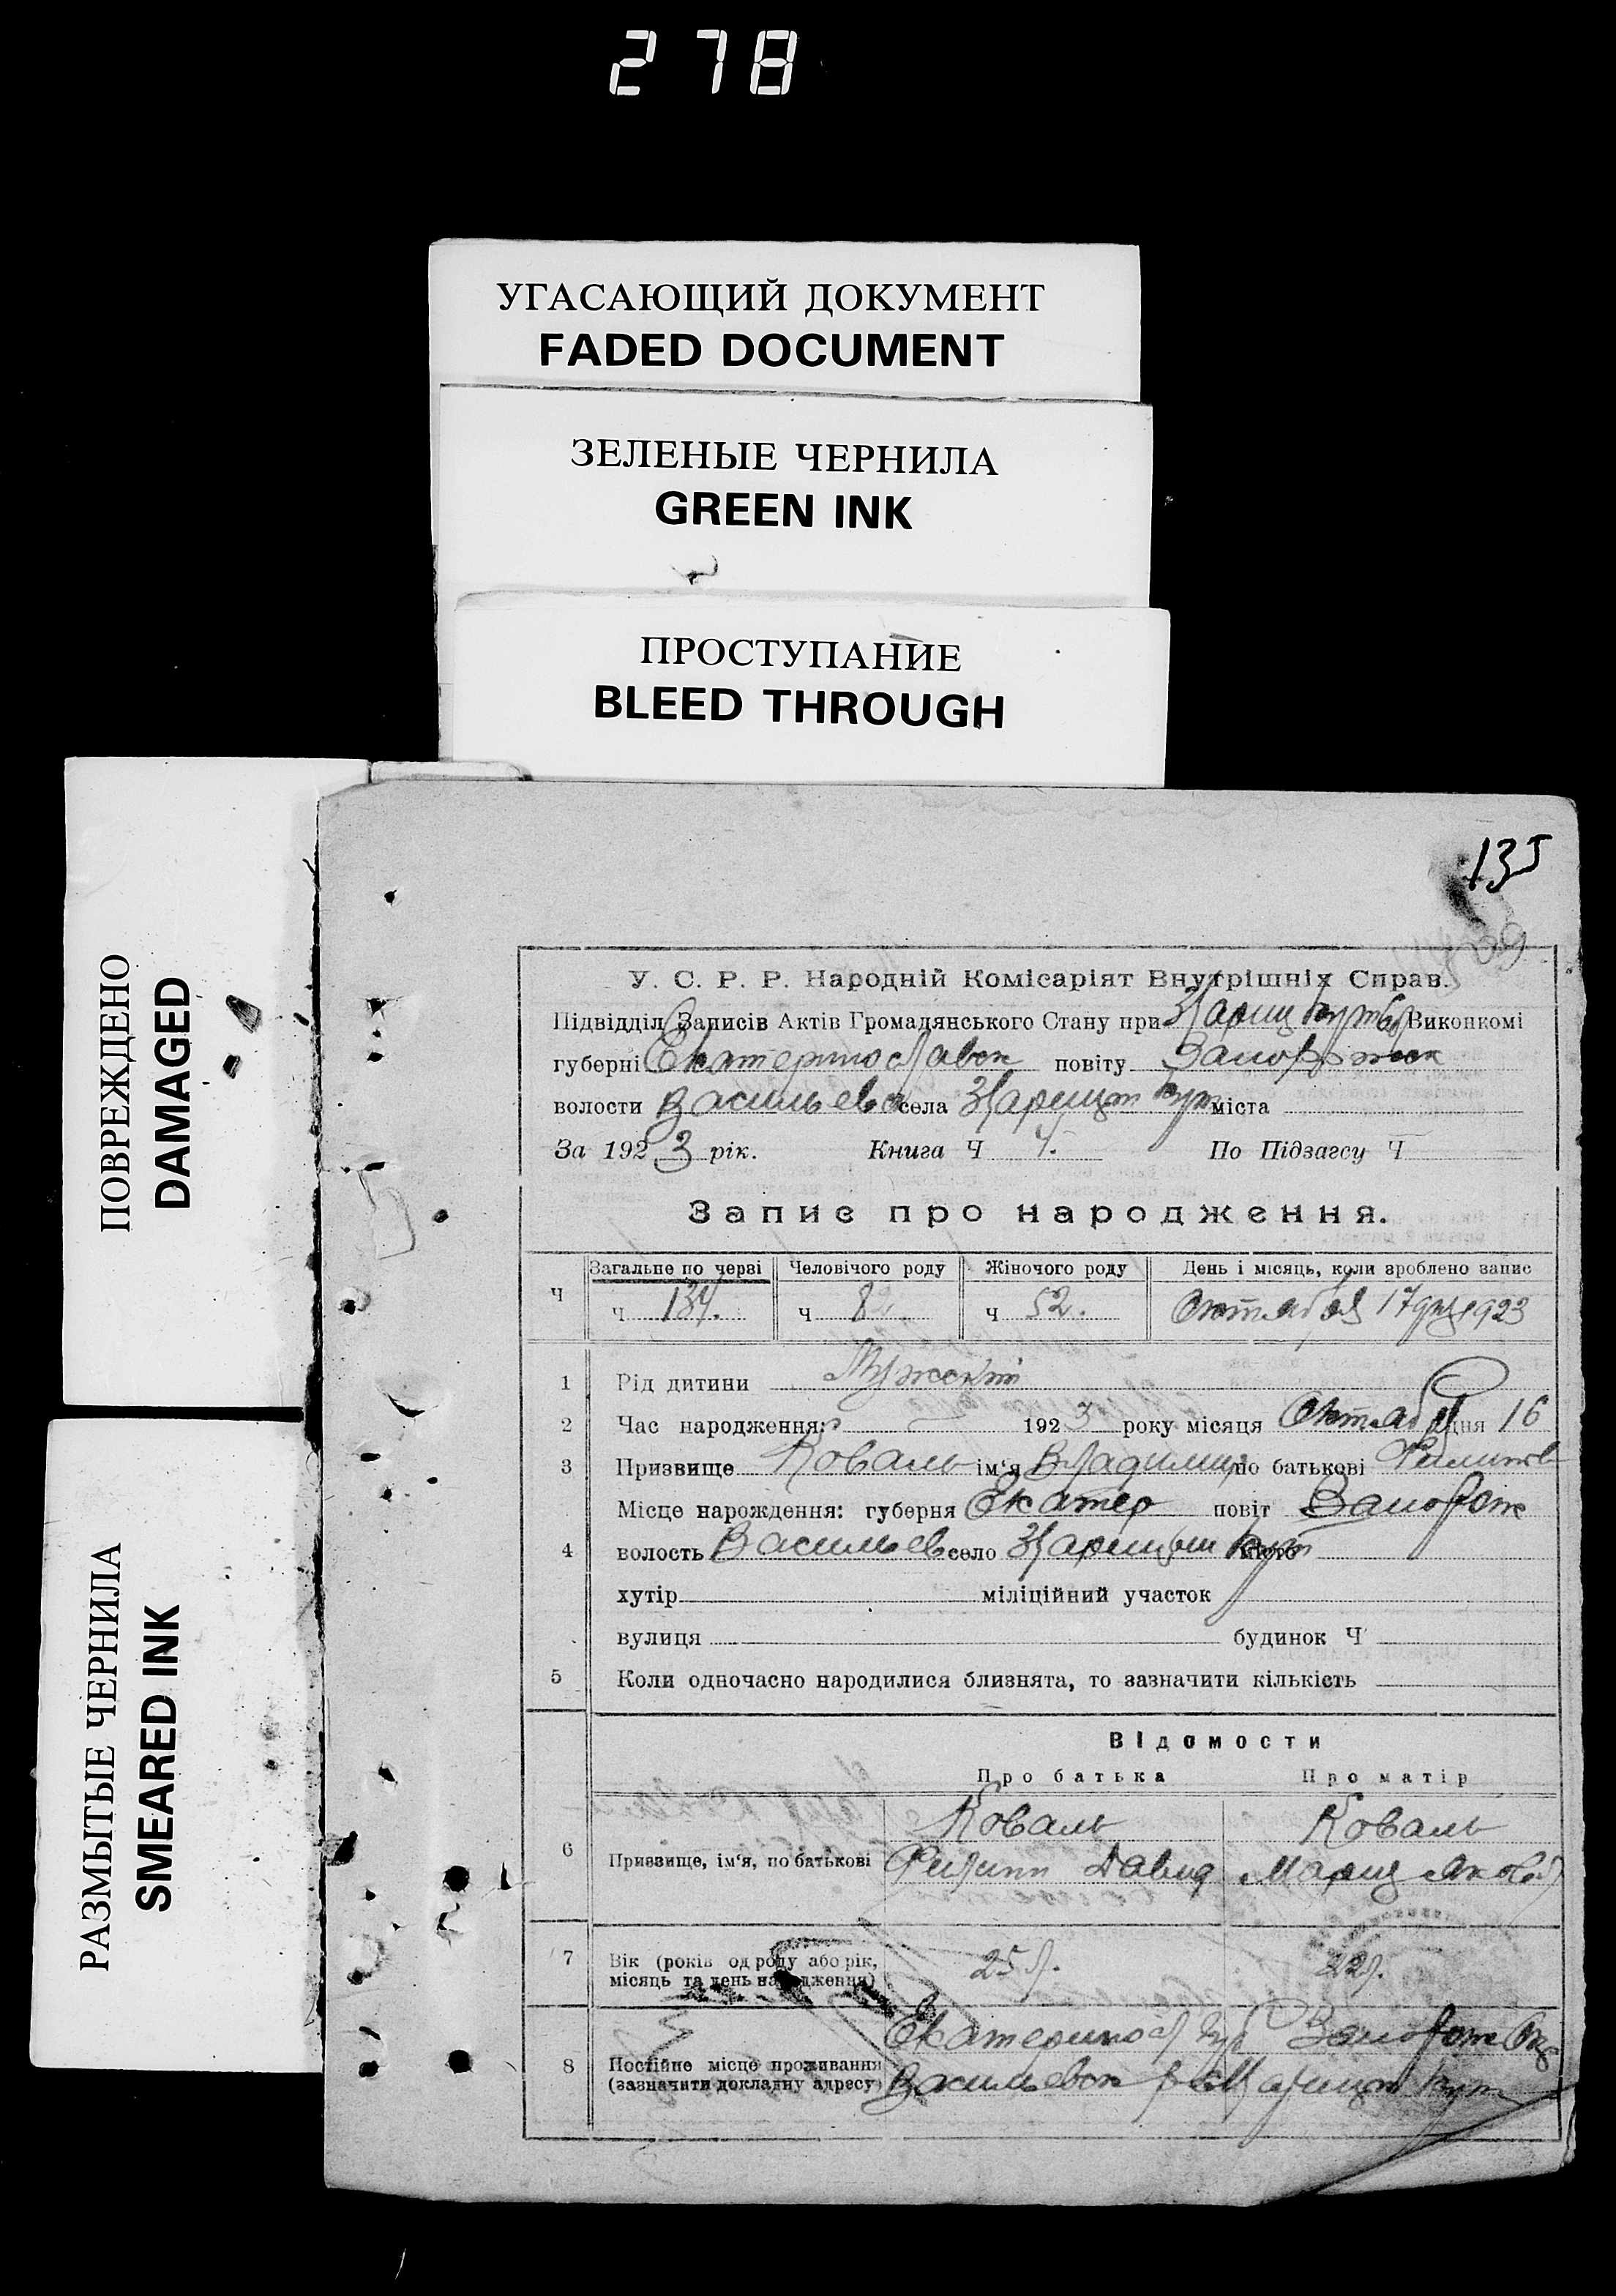 278
УГАСАЮЩИЙ ДОКУМЕНТ
FADED DOCUMENT
ЗЕЛЕНЫЕ ЧЕРНИЛА
GREEN INK
ПРОСТУПАНИЕ
BLEED THROUGH
ПОВРЕЖДЕНО
DAMAGED
РАЗМЫТЫЕ ЧЕРНИЛА
SMEARED INK
135
У. С. Р. Р. Народній Комісаріят Внутрішніх Справ.
Підвідділ Записів Актів Громадянського Стану при Виконкомі
губерні Екатеринославск повіту Запорожск
волости Васильев села Царицын Кут міста
За 1923 рік. Книга Ч По Підзагсу Ч
Запис про народження.
Ч Загальне по черзі Человічого роду Жіночого роду День і місяць, коли зроблено запис
ч 134. ч 82 ч 52. Октября 17 дня 1923
1 Рід дитини Мужский
2 Час народження: 1923 року місяця Октября дня 16
3 Призвище Коваль ім'я Владимир по батькові Филипов
Місце нарождення: губерня Екатер повіт Запорож
4 волость Васильев село Царицын Кут місто
хутір міліційний участок
вулиця будинок Ч
5 Коли одночасно народилися близнята, то зазначити кількість
Відомости
Про батька Про матір
Коваль Коваль
6 Призвище, ім'я, по батькові Филипп Давид Мария Яков
7 Вік (років од роду або рік, 25 л. 22 л.
місяць та день народження)
Екатеринос губ Запорож
8 Постійне місце проживання
(зазначити докладну адресу) Васильевск Царицын Кут